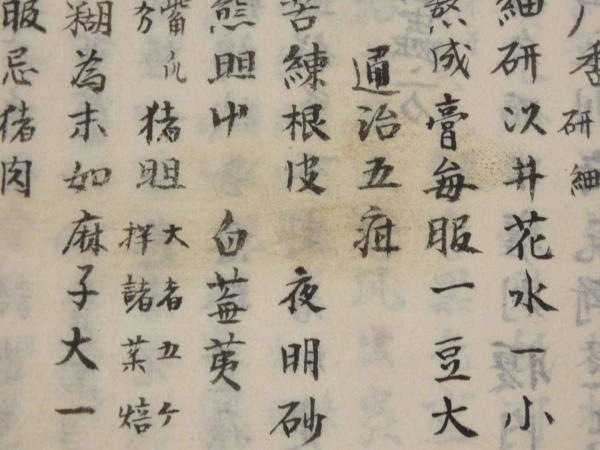 香 研細
細研以井花水一小
熬成膏每服一豆大
通治五疳
苦練根皮 夜明砂
熊胆 白蕪荑
猪胆 大者五ケ 拌諸焙
糊為末如麻子大一
服忌猪肉